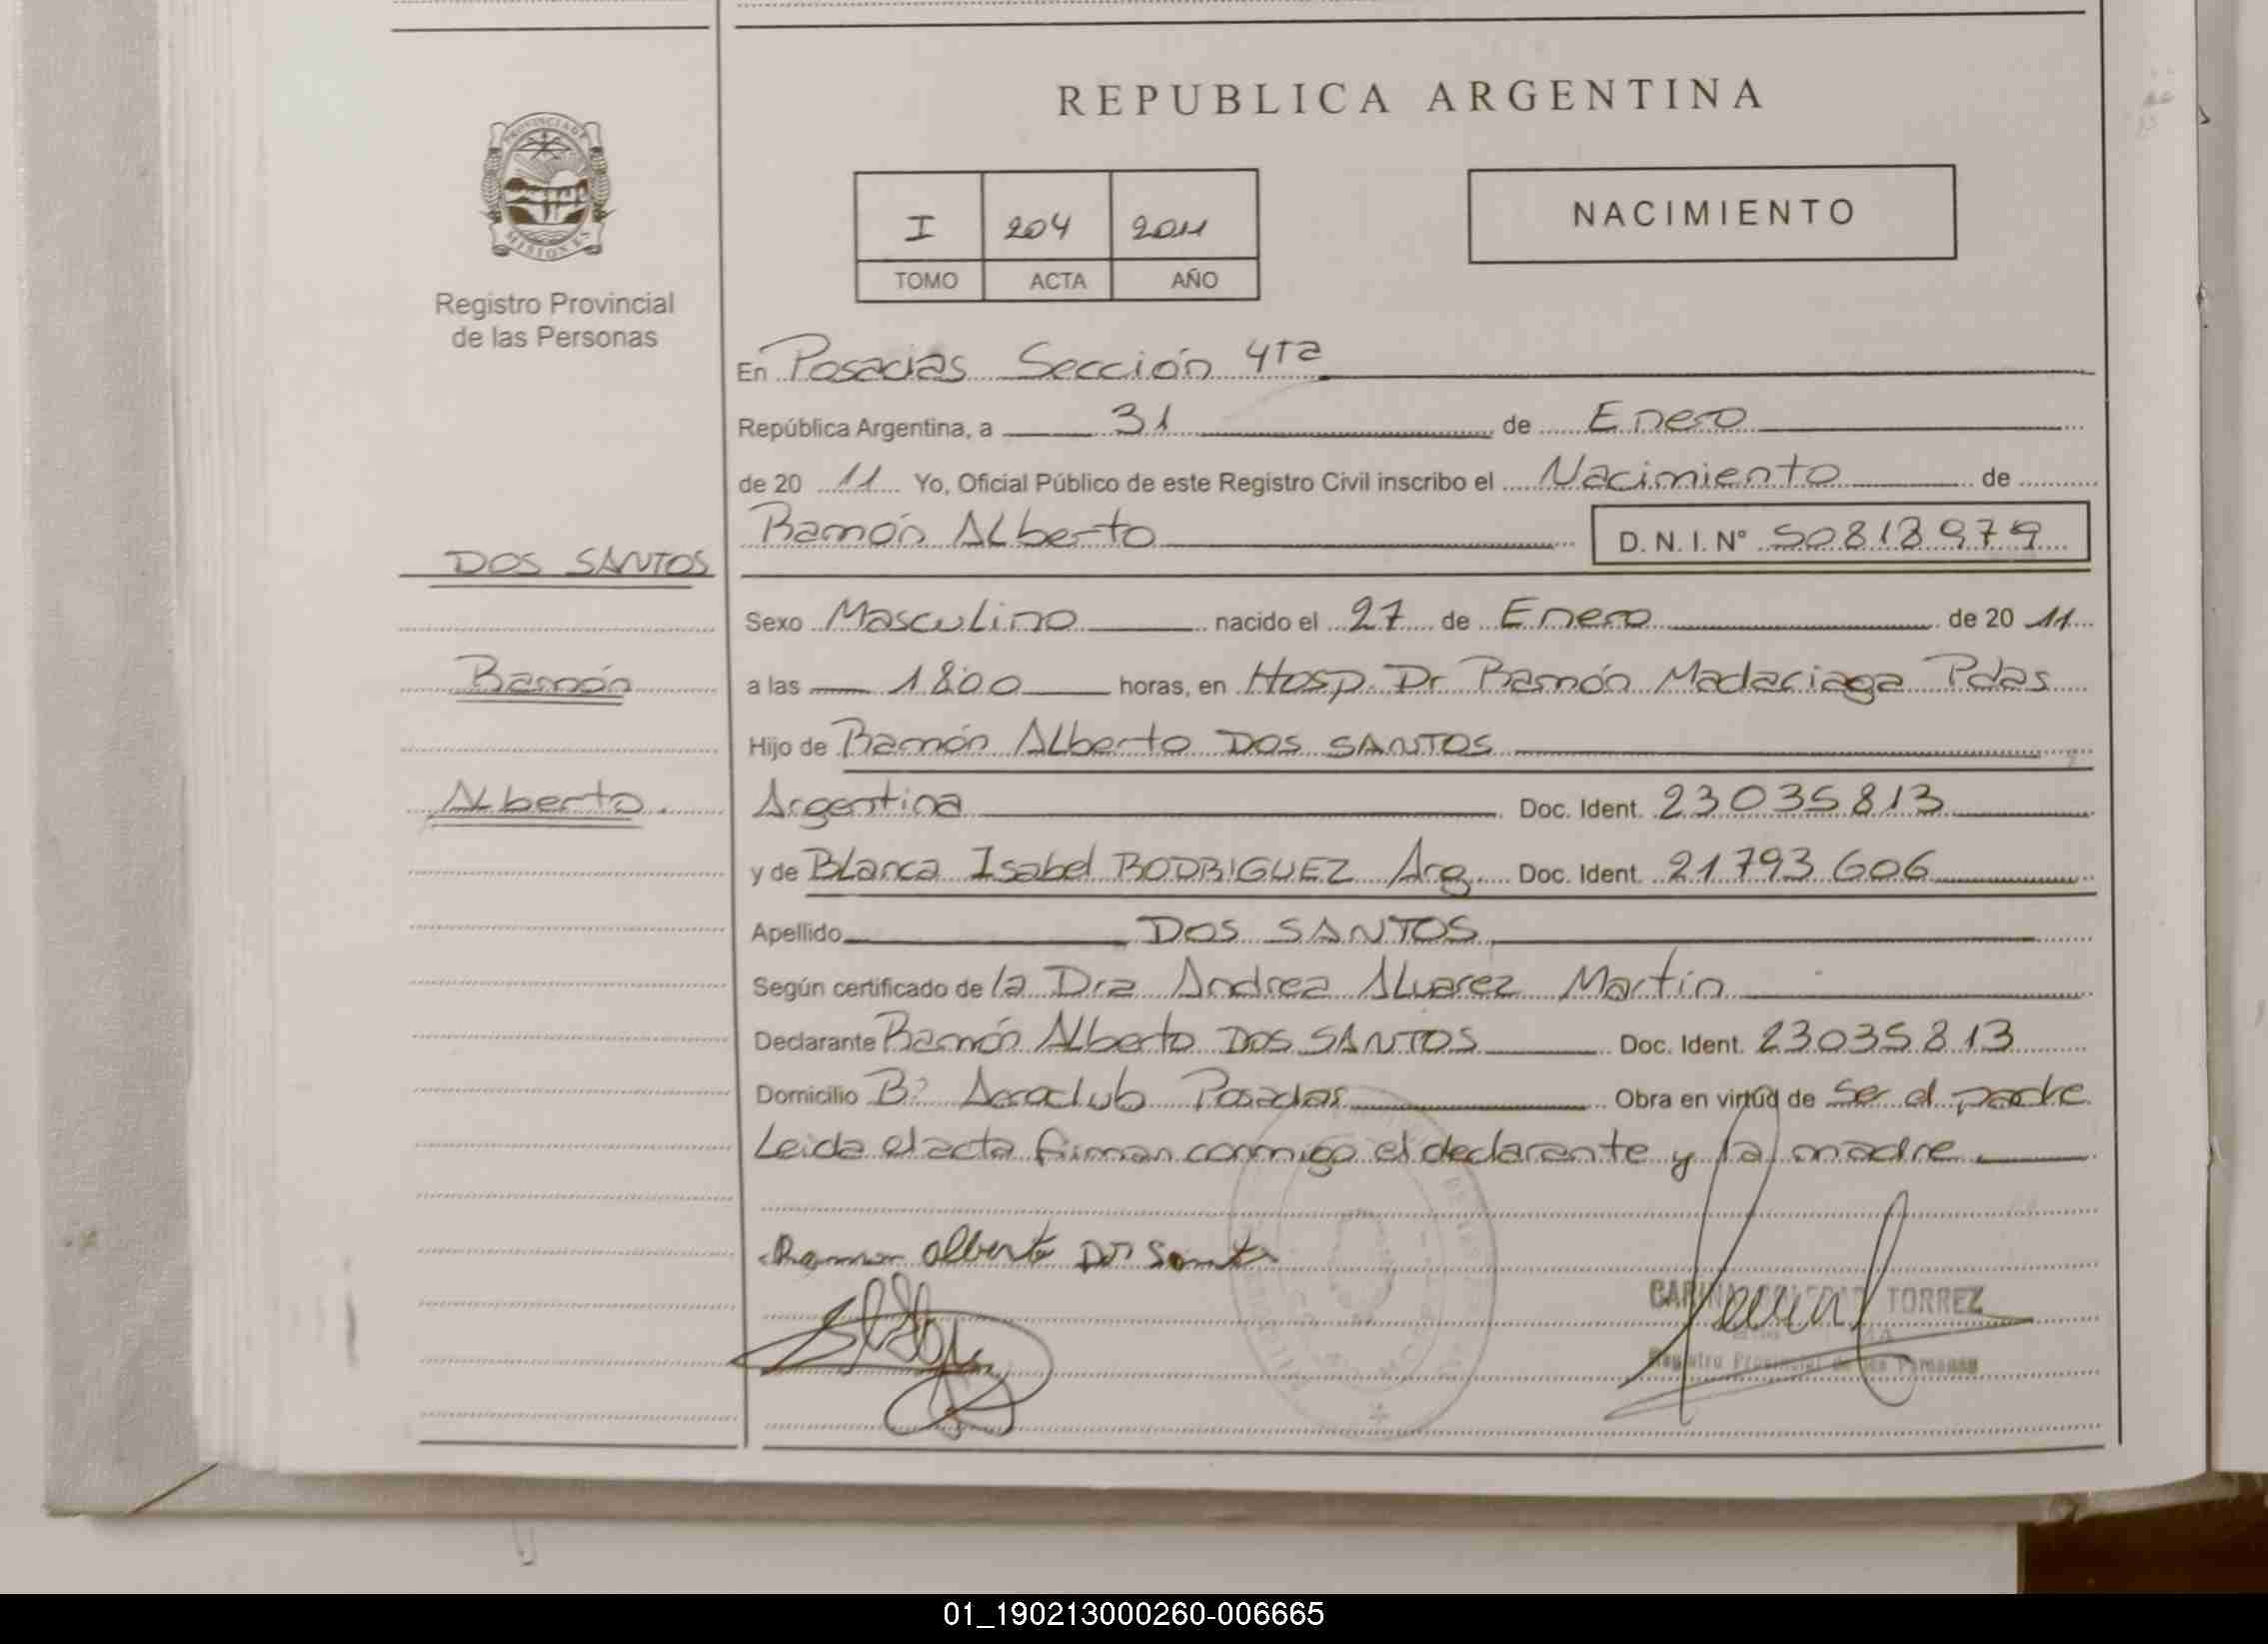 REPUBLICA ARGENTINA
PROVINCIA DE
MISIONES
Registro Provincial
de las Personas
I 204 2011
TOMO ACTA AÑO
NACIMIENTO
En Posadas Sección 4ta
República Argentina, a 31 de Enero
de 20 11 Yo, Oficial Público de este Registro Civil inscribo el Nacimiento de
Ramón Alberto D. N. I. Nº 50813979
DOS SANTOS
Ramón
Alberto.
Sexo Masculino nacido el 27 de Enero de 20 11
a las 18:00 horas, en Hosp. Dr Ramón Madariaga Pdas
Hijo de Ramón Alberto DOS SANTOS
Argentina Doc. Ident. 23035813
y de Blanca Isabel RODRIGUEZ Arg. Doc. Ident. 21793606
Apellido DOS SANTOS
Según certificado de la Dra Andrea Alvarez Martin
Declarante Ramón Alberto DOS SANTOS Doc. Ident. 23035813
Domicilio Bº Aeroclub Posadas Obra en virtud de ser el padre
Leida el acta firman conmigo el declarante y la madre
Ramon alberto Dos Santos
TORREZ
Registro Provincial de las Personas
01_190213000260-006665